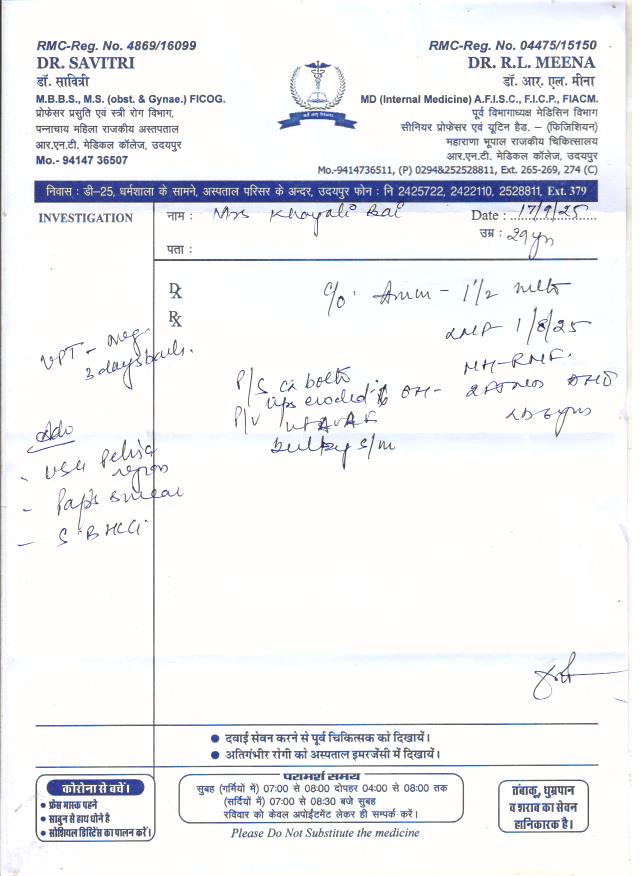 RMC-Reg. No. 4869/16099
DR. SAVITRI
डॉ. सावित्री
M.B.B.S., M.S. (obst. & Gynae.) FICOG.
प्रोफेसर प्रसुति एवं स्त्री रोग विभाग,
पन्नाधाय महिला राजकीय अस्तपताल
आर.एन.टी. मेडिकल कॉलेज, उदयपुर
Mo.- 94147 36507
RMC-Reg. No. 04475/15150
DR. R.L. MEENA
डॉ. आर. एल. मीना
MD (Internal Medicine) A.F.I.S.C., F.I.C.P., FIACM.
पूर्व विभागाध्यक्ष मेडिसिन विभाग
सीनियर प्रोफेसर एवं यूटिन हैड. – (फिजिशियन)
महाराणा भूपाल राजकीय चिकित्सालय
आर.एन.टी. मेडिकल कॉलेज, उदयपुर
Mo.-9414736511, (P) 0294&252528811, Ext. 265-269, 274 (C)
निवास : डी-25, धर्मशाला के सामने, अस्पताल परिसर के अन्दर, उदयपुर फोन : नि 2425722, 2422110, 2528811, Ext. 379
INVESTIGATION
नाम : Mrs Khayali Bai
Date : 17/9/25
उम्र : 29 yrs
पता :
Dx
Rx
C/o. Amm - 1 1/2 mth
LMP 1/8/25
MH-RMF.
UPT - neg.
3 days back.
P/S cx both
lips eroded
OH-
P/V UT AVAF
Bulky s/m
Adv
- USG Pelvic region
- Pap's smear
- S. BHCG
दवाई सेवन करने से पूर्व चिकित्सक को दिखायें।
अतिगंभीर रोगी को अस्पताल इमरजेंसी में दिखायें।
कोरोना से बचें।
फ्रेस मास्क पहने
साबुन से हाथ धोने है
सोशियल डिस्टिेंस का पालन करें।
परामर्श समय
सुबह (गर्मियों में) 07:00 से 08:00 दोपहर 04:00 से 08:00 तक
(सर्दियों में) 07:00 से 08:30 बजे सुबह
रविवार को केवल अपोईंटमेंट लेकर ही सम्पर्क करें।
Please Do Not Substitute the medicine
तंबाकू, धुम्रपान
व शराब का सेवन
हानिकारक है।